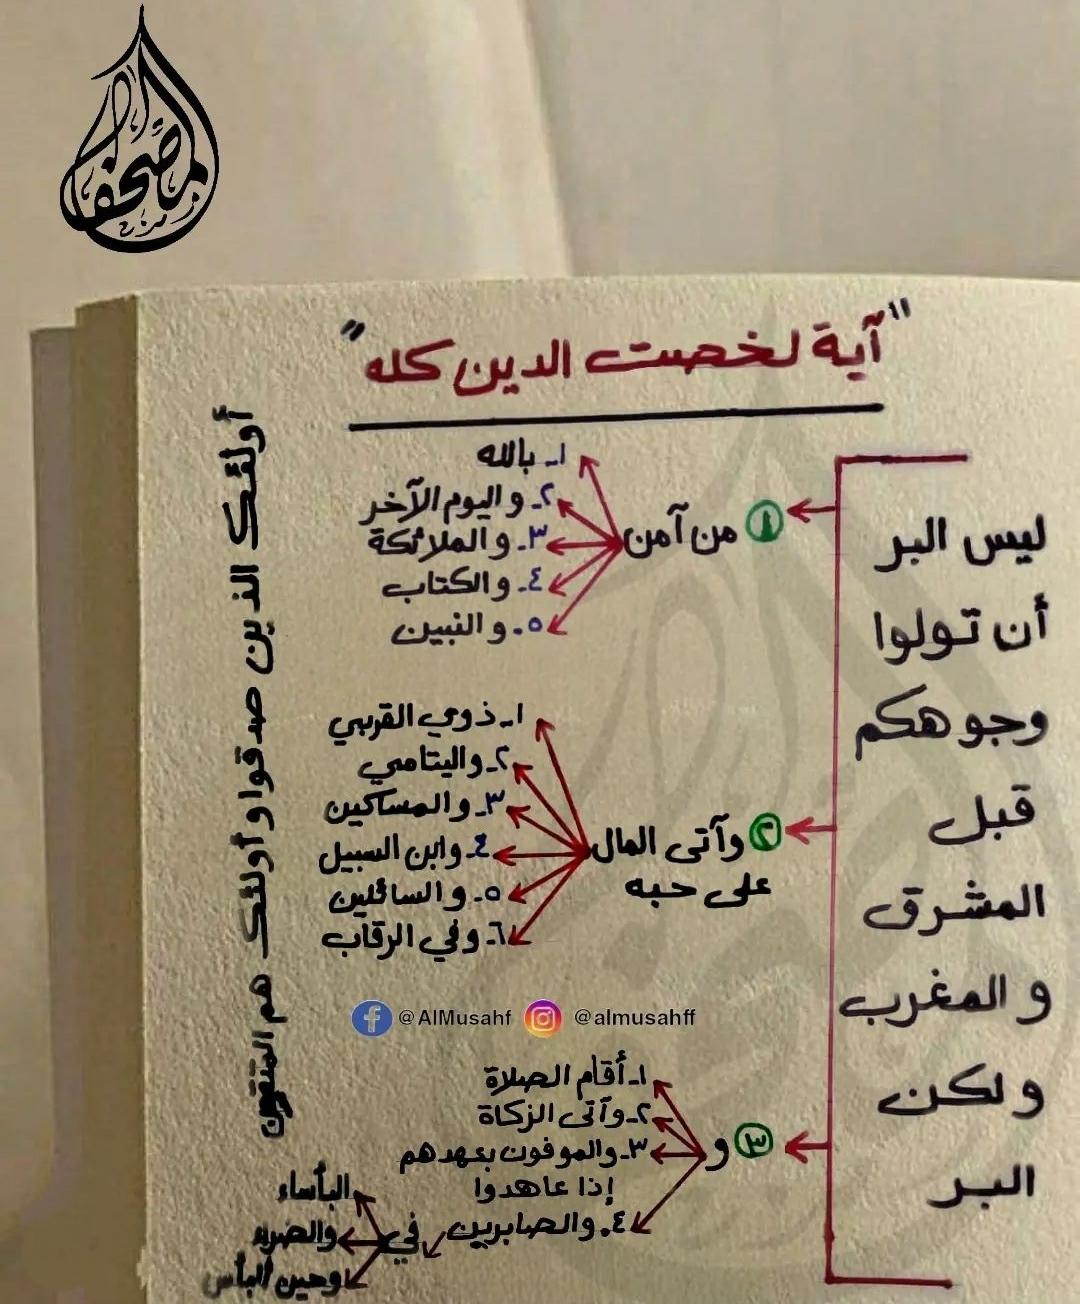 المصحف
"آية لخصت الدين كله"
ليس البر
أن تولوا
وجوهكم
قبل
المشرق
والمغرب
ولكن
البر
١ من آمن
١ـ بالله
٢ـ واليوم الآخر
٣ـ والملائكة
٤ـ والكتاب
٥ـ والنبين
٢ وآتى المال
على حبه
١ـ ذوي القربي
٢ـ واليتامي
٣ـ والمساكين
٤ـ وابن السبيل
٥ـ والسائلين
٦ـ وفي الرقاب
@AlMusahf @almusahff
٣ و
١ـ أقام الصلاة
٢ـ وآتى الزكاة
٣ـ والموفون بعهدهم
إذا عاهدوا
٤ـ والصابرين
في
البأساء
والضراء
وحين البأس
أولئك الذين صدقوا وأولئك هم المتقون